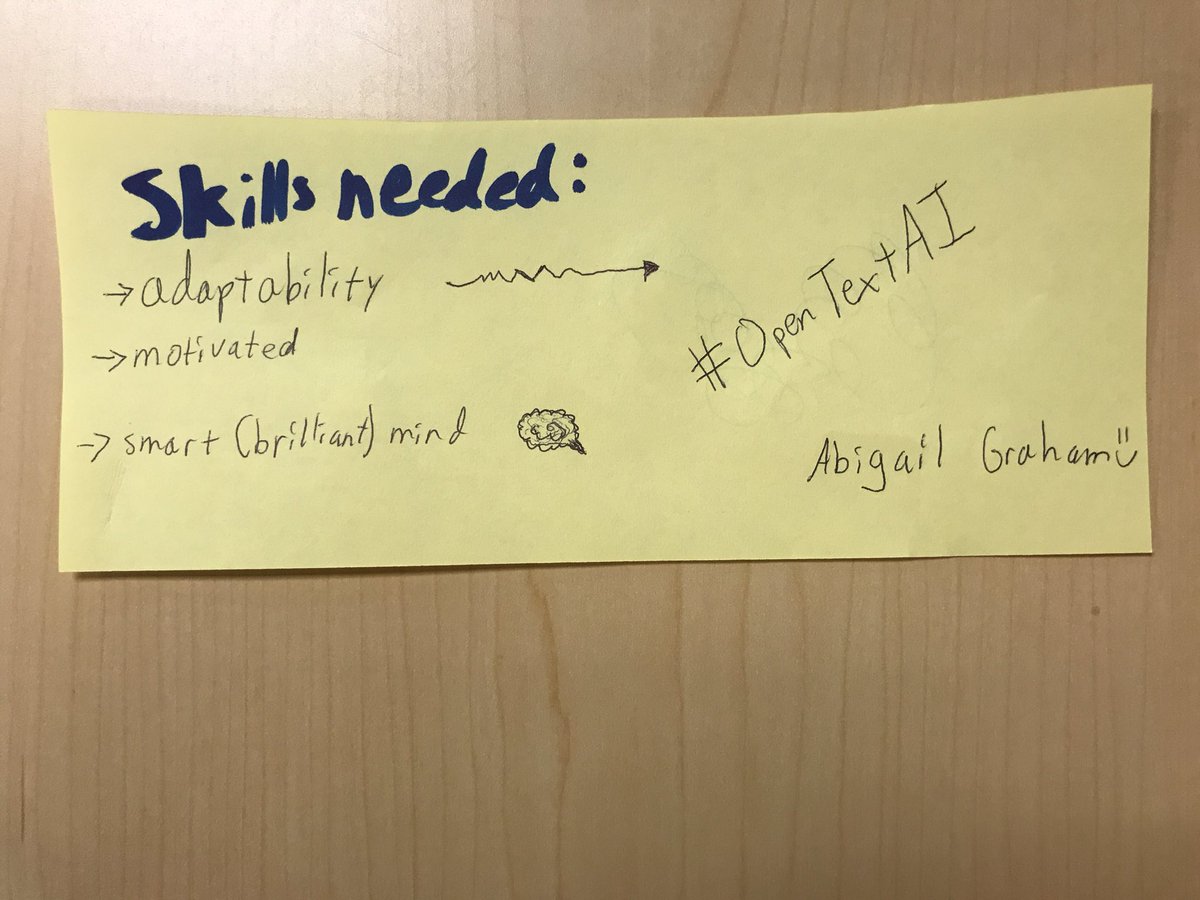 Skills needed:
→ adaptability
→ motivated
→ smart (brilliant) mind
#OpenTextAI
Abigail Graham